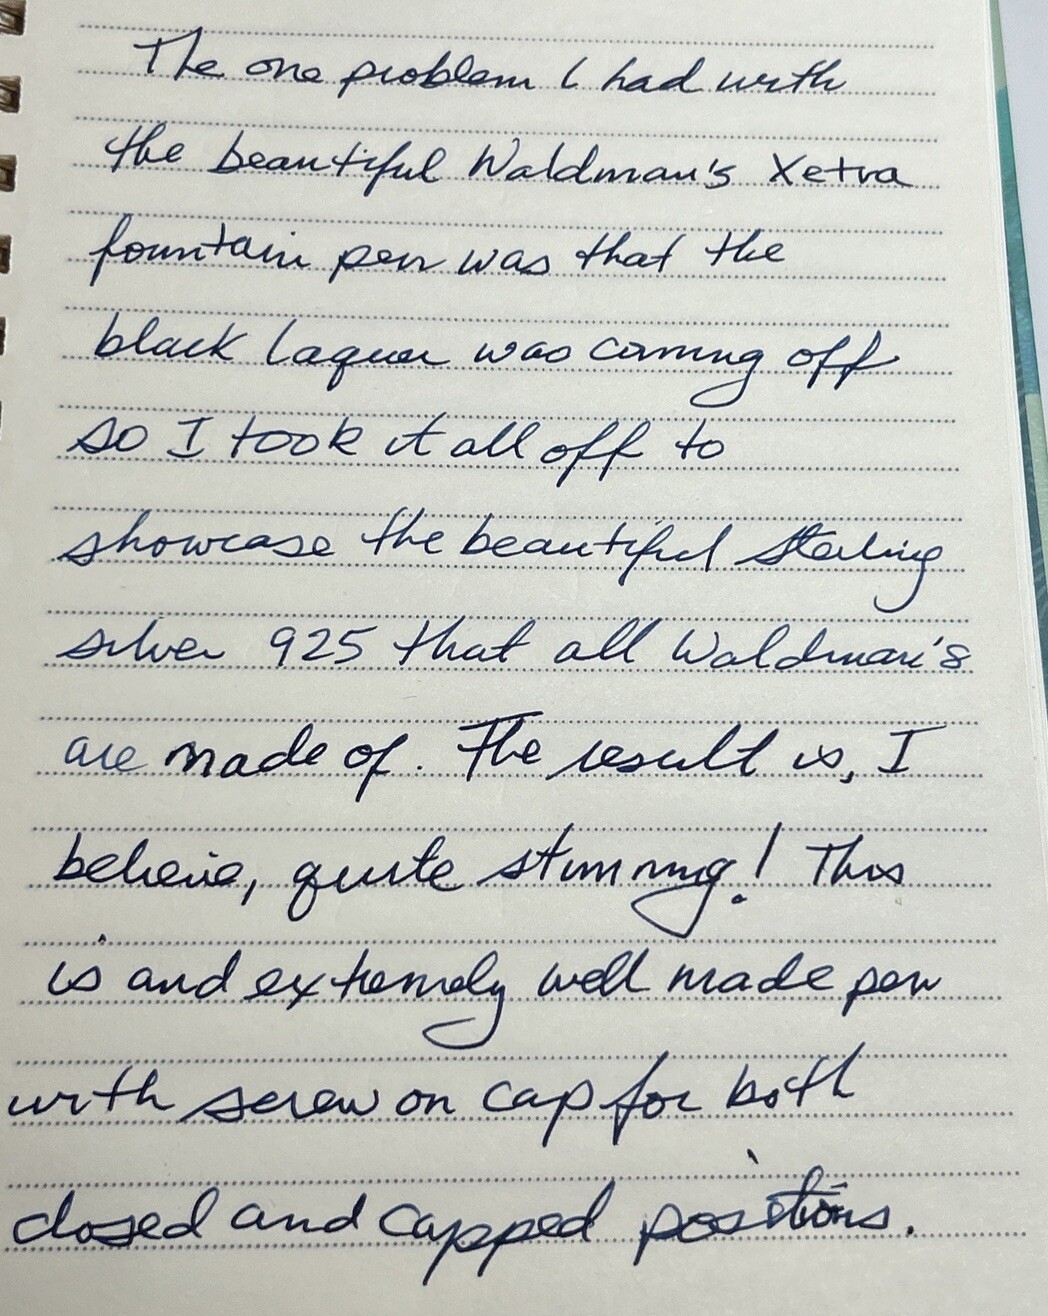 The one problem I had with
the beautiful Waldman's Xetra
fountain pen was that the
black laquer was coming off
so I took it all off to
showcase the beautiful sterling
silver 925 that all Waldman's
are made of. The result is, I
believe, quite stunning! This
is and extremely well made pen
with screw on cap for both
closed and capped positions.